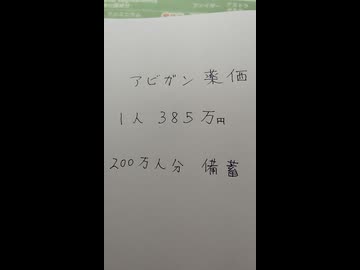 アビガン 薬価
1人 385万円
200万人分 備蓄